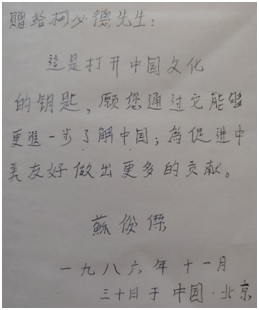 贈给柯必德先生：
這是打开中国文化
的钥匙，愿您通过它能够
更進一步了解中国；為促進中
美友好做出更多的贡献。
蘇俊傑
一九八六年十一月
三十日于中国·北京